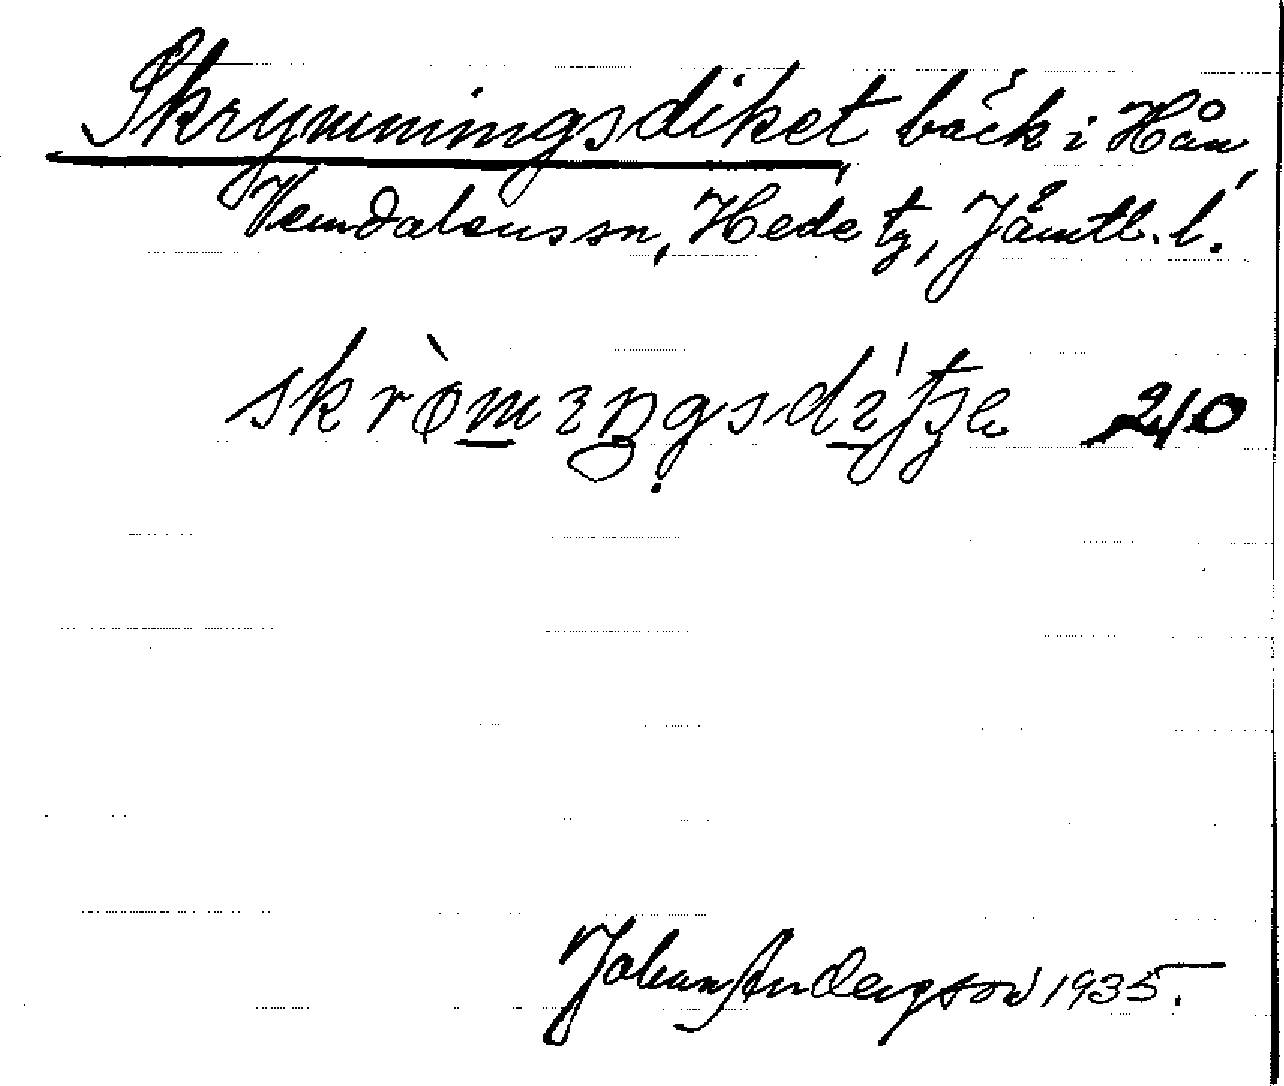 Skrymningsdiket bäck i Hån,
Vemdalens sn, Hede tg, Jämtl. l.
210
Johan Andersson 1935.